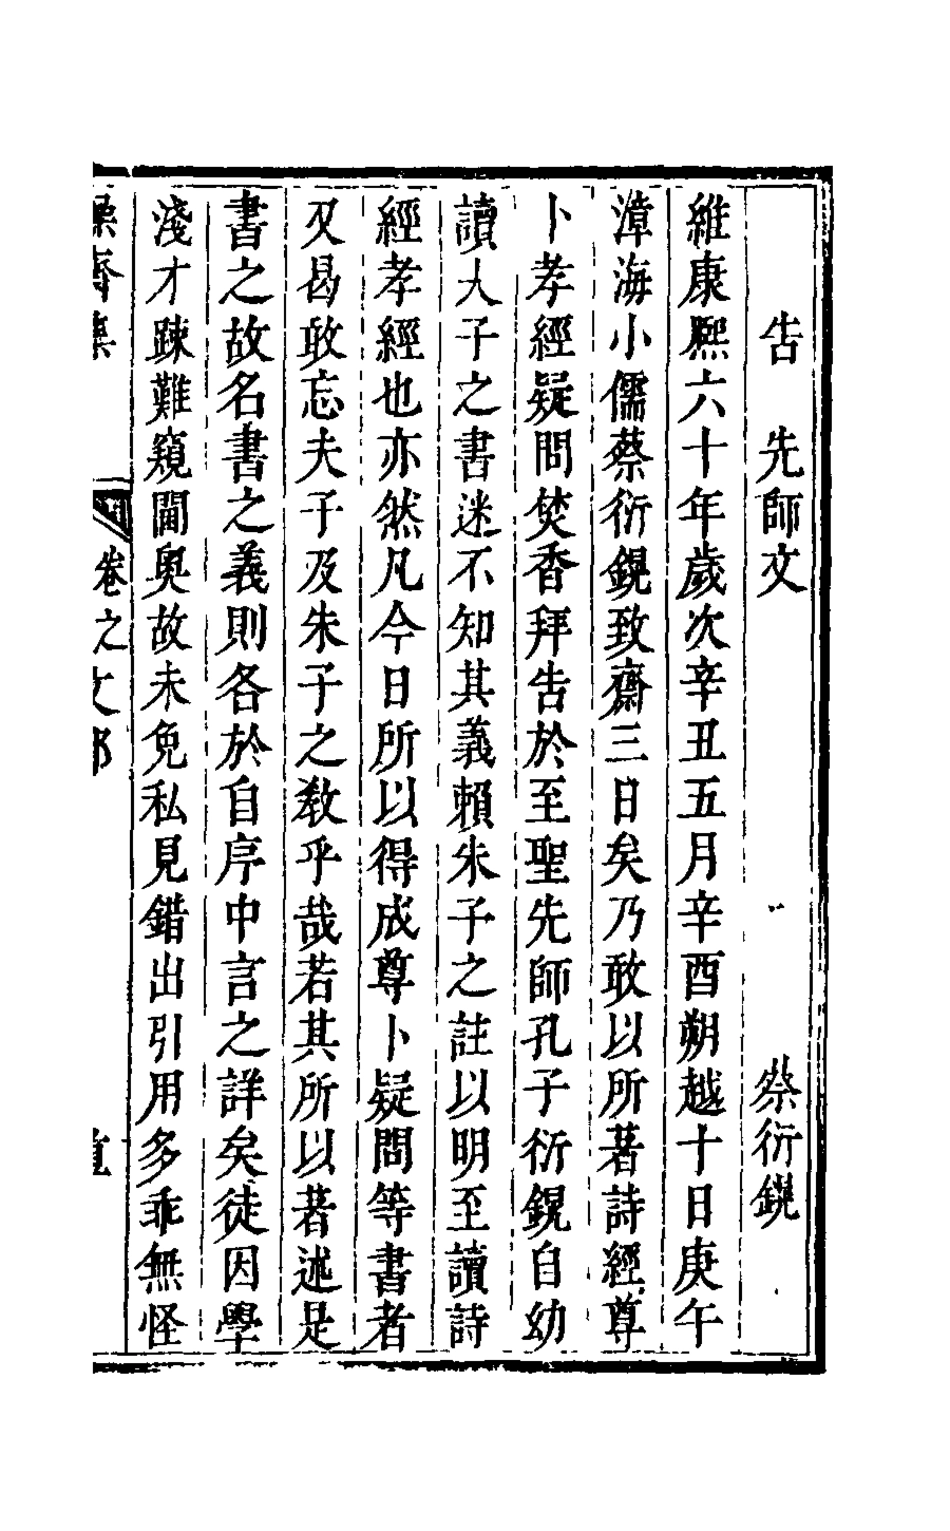 告　先師文　蔡衍鎤
維康熙六十年歲次辛丑五月辛酉朔越十日庚午
漳海小儒蔡衍鎤致齋三日矣乃敢以所著詩經尊
卜孝經疑問焚香拜告於至聖先師孔子衍鎤自幼
讀夫子之書迷不知其義賴朱子之註以明至讀詩
經孝經也亦然凡今日所以得成尊卜疑問等書者
又曷敢忘夫子及朱子之教乎哉若其所以著述是
書之故名書之義則各於自序中言之詳矣徒因學
淺才踈難窺閫奧故未免私見錯出引用多乖無怪
操齋集　卷之　文部